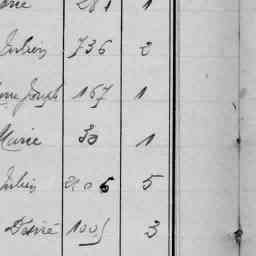 281 1
Julien 736 2
Joseph 167 1
Marie 30 1
Julien 2106 5
Désiré 1005 3